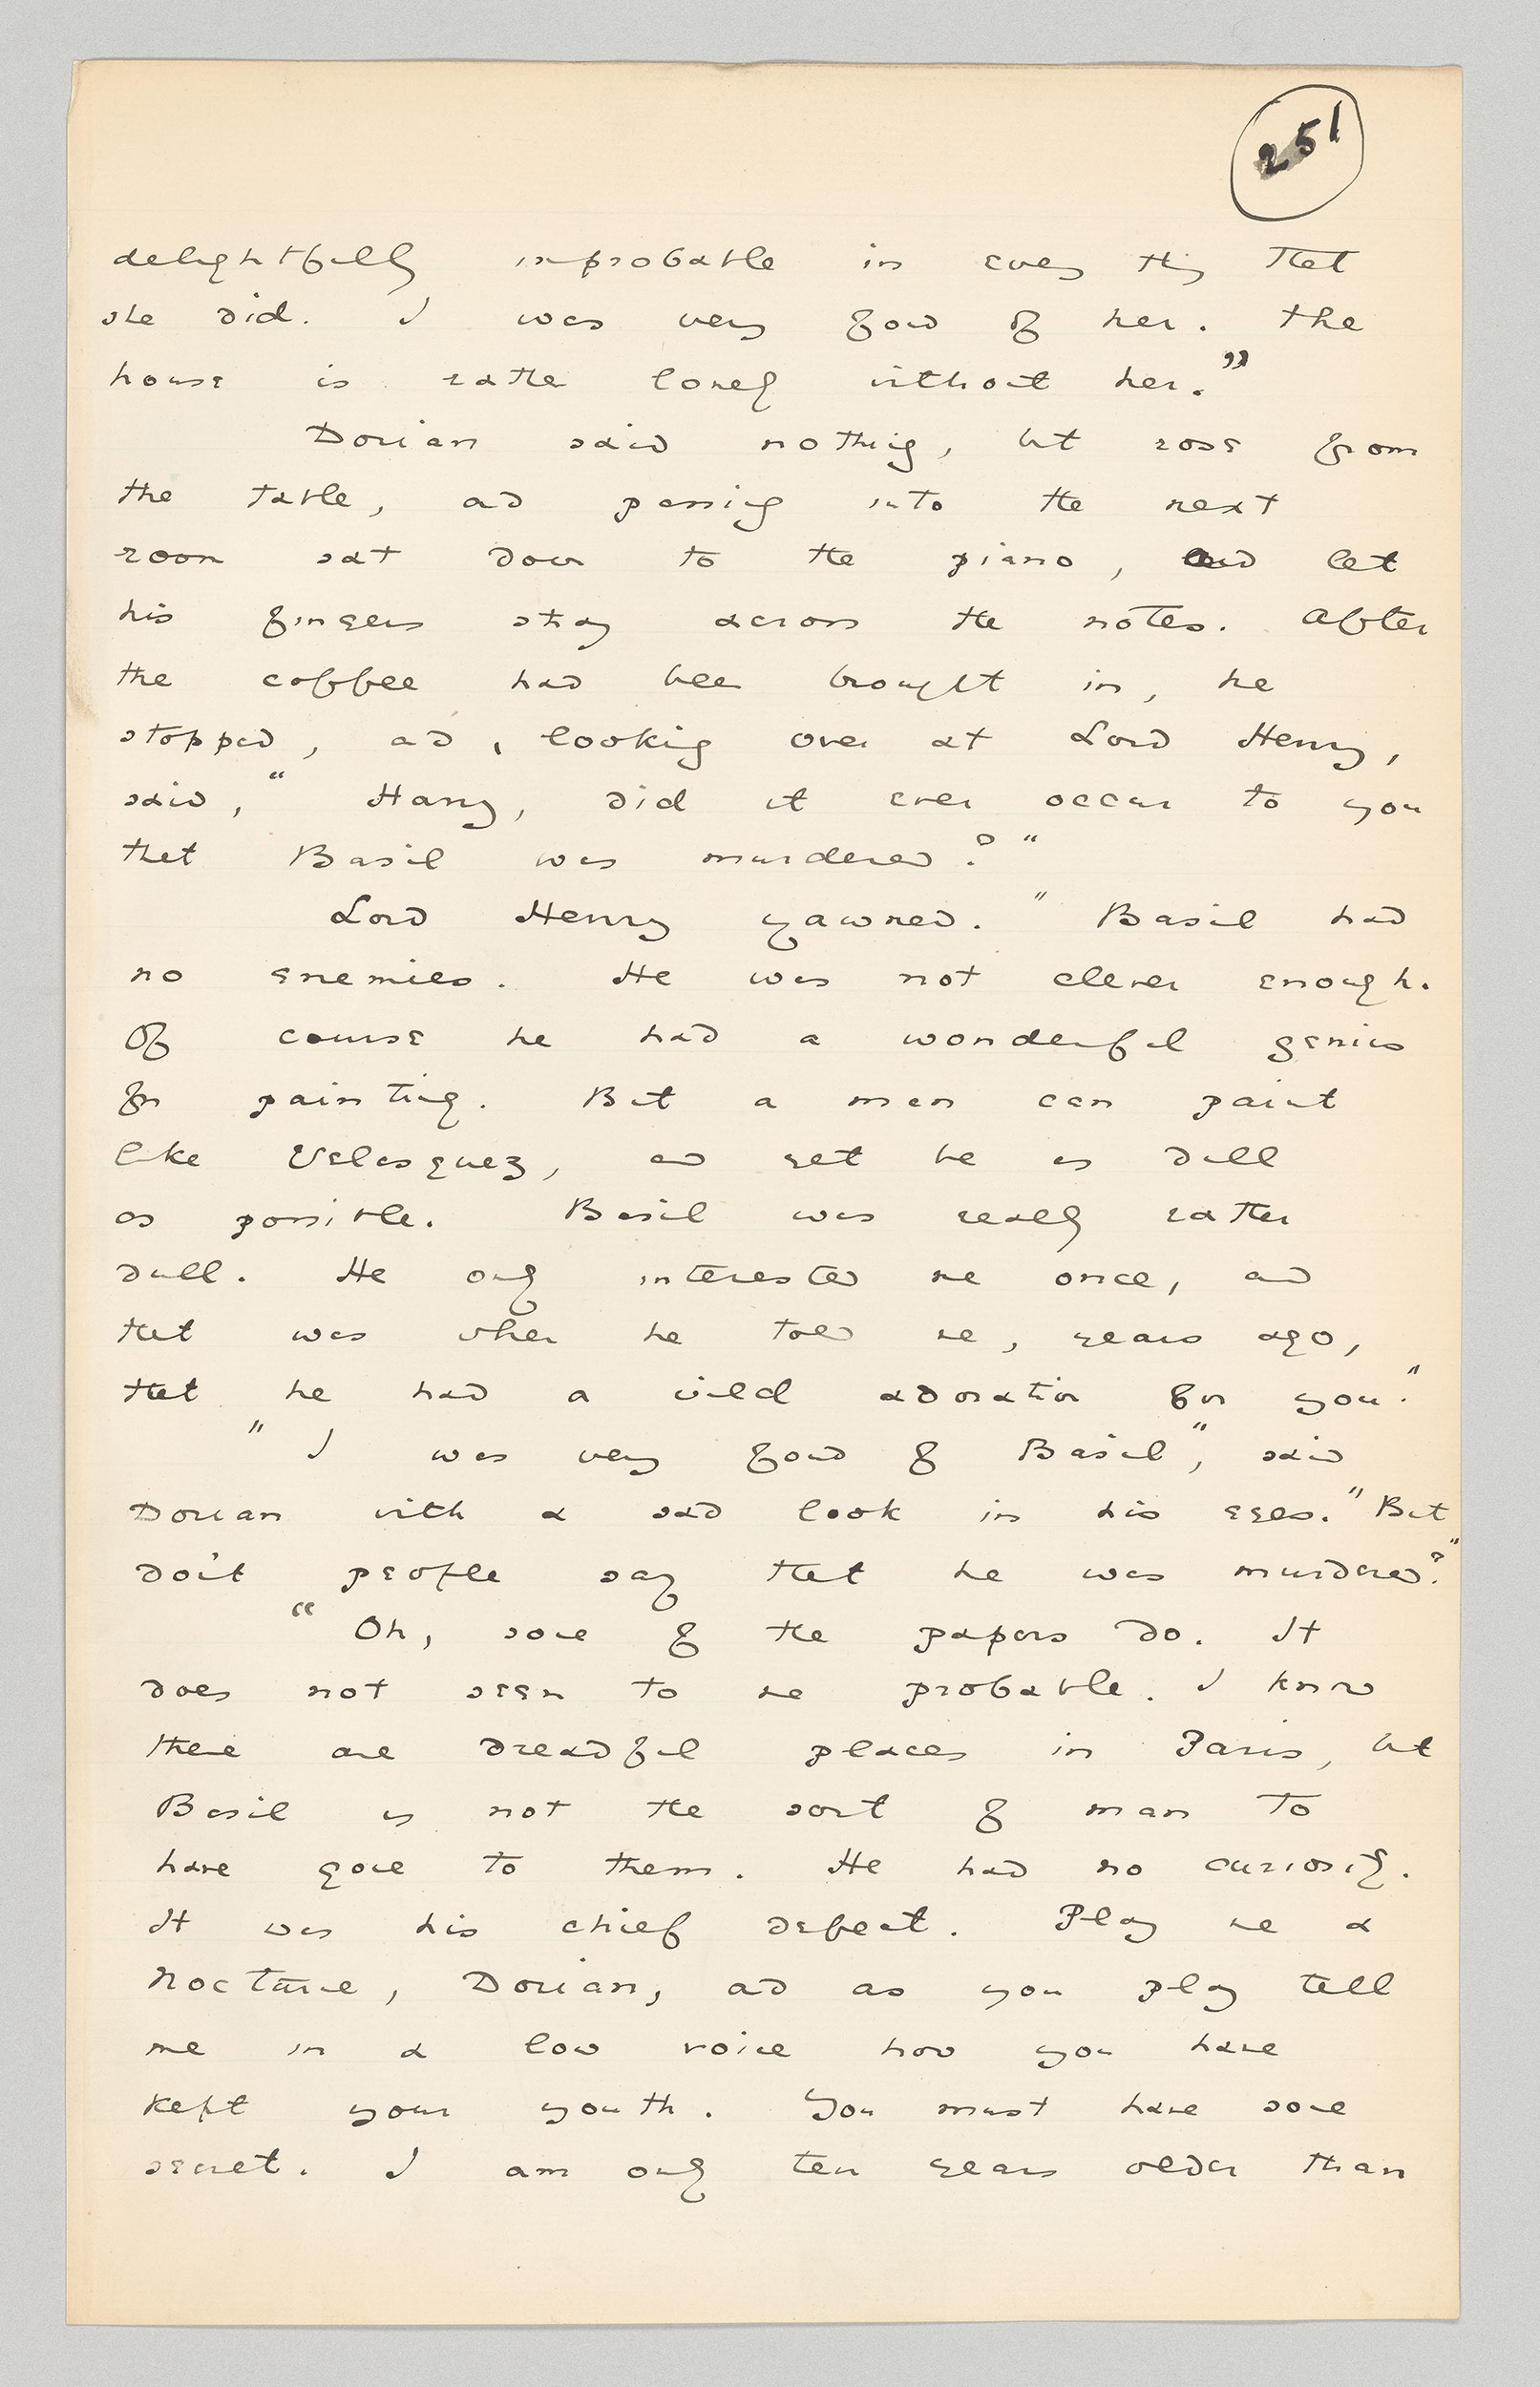 251
delightfully improbable in every thing that
she did. I was very fond of her. The
house is rather lonely without her."
Dorian said nothing, but rose from
the table, and passing into the next
room sat down to the piano, and let
his fingers stray across the notes. After
the coffee had been brought in, he
stopped, and, looking over at Lord Henry,
said, "Harry, did it ever occur to you
that Basil was murdered?"
Lord Henry yawned. "Basil had
no enemies. He was not clever enough.
Of course he had a wonderful genius
for painting. But a man can paint
like Velasquez, and yet be as dull
as possible. Basil was really rather
dull. He only interested me once, and
that was when he told me, years ago,
that he had a wild adoration for you."
"I was very fond of Basil", said
Dorian with a sad look in his eyes. "But
don't people say that he was murdered?"
"Oh, some of the papers do. It
does not seem to me probable. I know
there are dreadful places in Paris, but
Basil is not the sort of man to
have gone to them. He had no curiosity.
It was his chief defect. Play me a
nocturne, Dorian, and as you play tell
me in a low voice how you have
kept your youth. You must have some
secret. I am only ten years older than